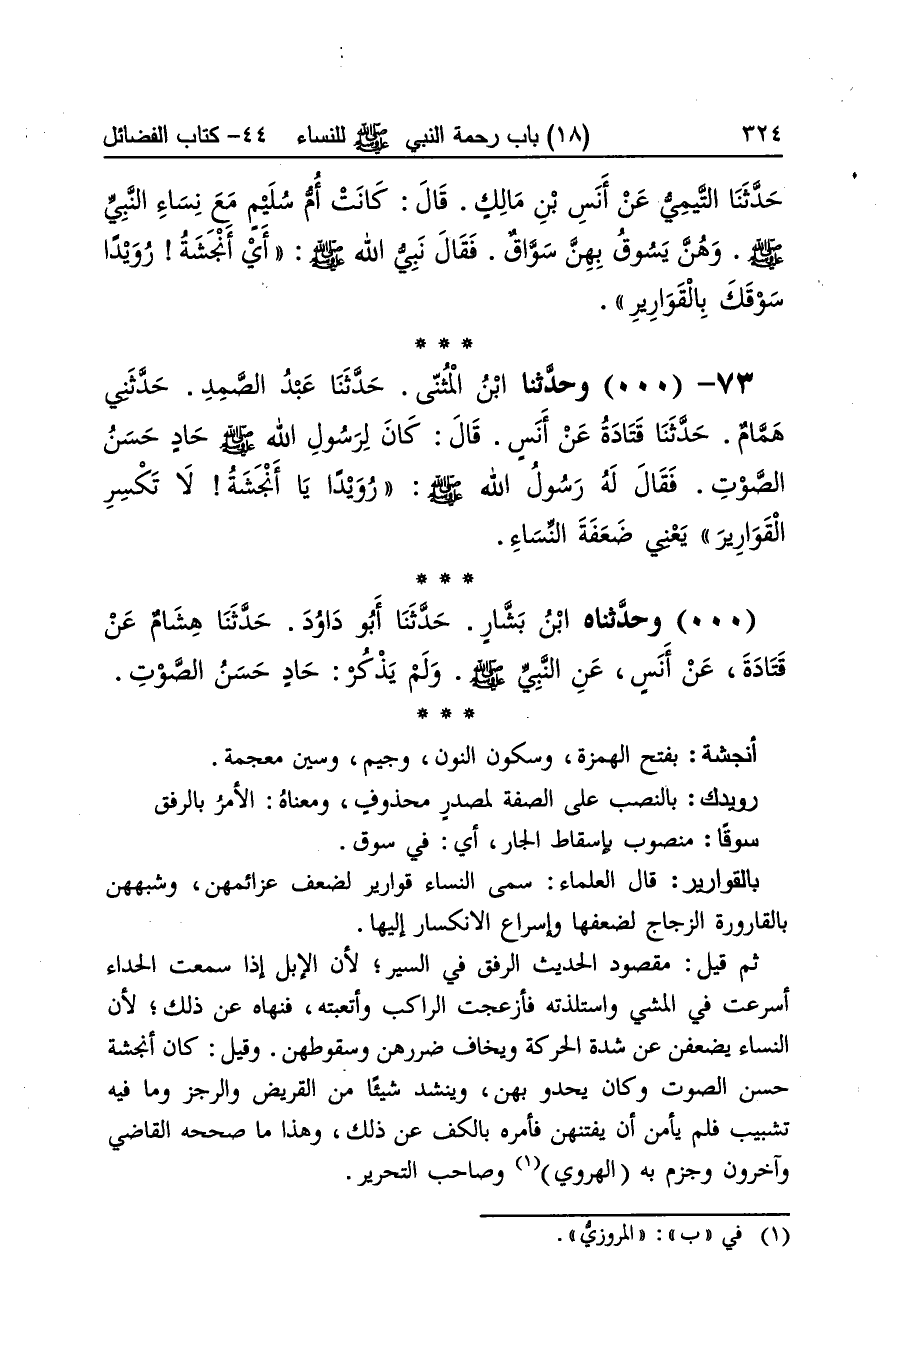 ٣٢٤ (١٨) باب رحمة النبي ﷺ للنساء ٤٤- كتاب الفضائل
حَدَّثَنَا التَّيْمِيُّ عَنْ أَنَسِ بْنِ مَالِكٍ . قَالَ : كَانَتْ أُمُّ سُلَيْمٍ مَعَ نِسَاءِ النَّبِيِّ
ﷺ . وَهُنَّ يَسُوقُ بِهِنَّ سَوَّاقٌ . فَقَالَ نَبِيُّ الله ﷺ : « أَيْ أَنْجَشَةُ ! رُوَيْدًا
سَوْقَكَ بِالْقَوَارِيرِ » .
* * *
٧٣- (٠٠٠) وحدَّثنا ابْنُ الْمُثَنَّى . حَدَّثَنَا عَبْدُ الصَّمِدِ . حَدَّثَنِي
هَمَّامٌ . حَدَّثَنَا قَتَادَةُ عَنْ أَنَسٍ . قَالَ : كَانَ لِرَسُولِ الله ﷺ حَادٍ حَسَنُ
الصَّوْتِ . فَقَالَ لَهُ رَسُولُ الله ﷺ : « رُوَيْدًا يَا أَنْجَشَةُ ! لَا تَكْسِرِ
الْقَوَارِيرَ » يَعْنِي ضَعَفَةَ النِّسَاءِ .
* * *
(٠٠٠) وحدَّثناه ابْنُ بَشَّارٍ . حَدَّثَنَا أَبُو دَاوُدَ . حَدَّثَنَا هِشَامٌ عَنْ
قَتَادَةَ ، عَنْ أَنَسٍ ، عَنِ النَّبِيِّ ﷺ . وَلَمْ يَذْكُرْ : حَادٍ حَسَنُ الصَّوْتِ .
* * *
أنجشة : بفتح الهمزة ، وسكون النون ، وجيم ، وسين معجمة .
رويدك : بالنصب على الصفة لمصدرٍ محذوفٍ ، ومعناهُ : الأمرُ بالرفق
سوقًا : منصوب بإسقاط الجار ، أي : في سوق .
بالقوارير : قال العلماء : سمى النساء قوارير لضعف عزائمهن ، وشبههن
بالقارورة الزجاج لضعفها وإسراع الانكسار إليها .
ثم قيل : مقصود الحديث الرفق في السير ؛ لأن الإبل إذا سمعت الحداء
أسرعت في المشي واستلذته فأزعجت الراكب وأتعبته ، فنهاه عن ذلك ؛ لأن
النساء يضعفن عن شدة الحركة ويخاف ضررهن وسقوطهن . وقيل : كان أنجشة
حسن الصوت وكان يحدو بهن ، وينشد شيئًا من القريض والرجز وما فيه
تشبيب فلم يأمن أن يفتنهن فأمره بالكف عن ذلك ، وهذا ما صححه القاضي
وآخرون وجزم به (الهروي)(١) وصاحب التحرير .
(١) في «ب» : «المروزيُّ» .